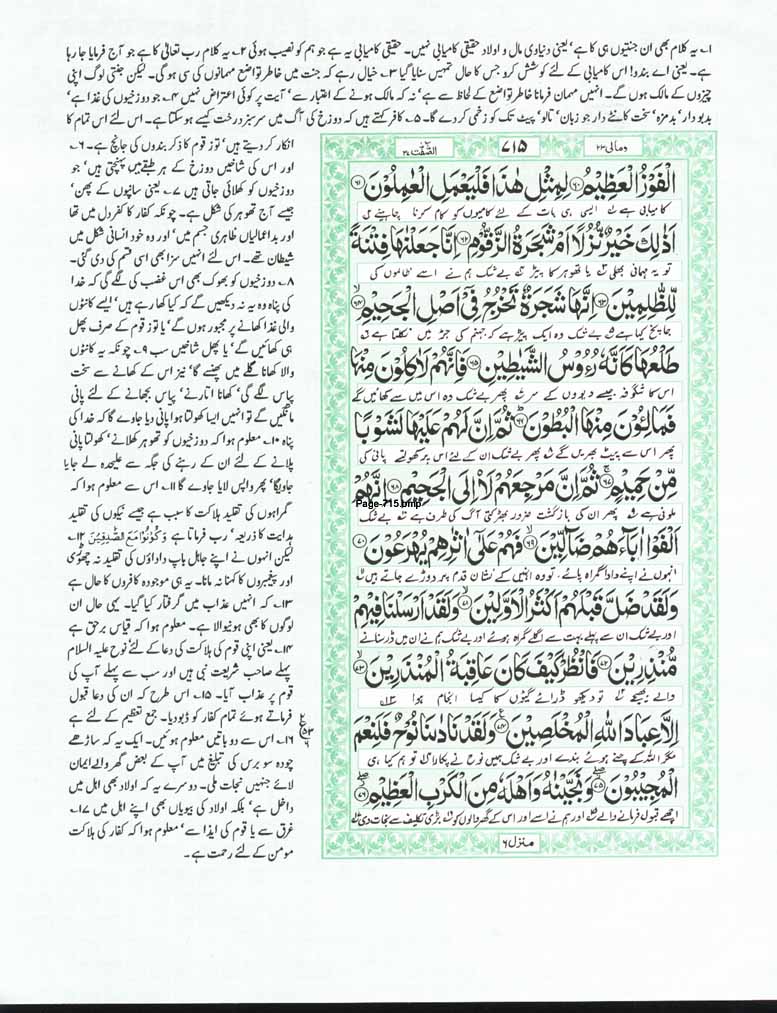 ۱؂ یہ کلام بھی ان جنتیوں ہی کا ہے‘ یعنی دنیاوی مال و اولاد حقیقی کامیابی نہیں۔ حقیقی کامیابی یہ ہے جو ہم کو نصیب ہوئی ۲؂ یہ کلام رب تعالیٰ کا ہے جو آج فرمایا جا رہا
ہے۔ یعنی اے بندو! اس کامیابی کے لئے کوشش کرو جس کا حال تمہیں سنایا گیا ۳؂ خیال رہے کہ جنت میں خاطر تواضع مہمانوں کی سی ہو گی۔ لیکن جنتی لوگ اپنی
چیزوں کے مالک ہوں گے۔ انہیں مہمان فرمانا خاطر تواضع کے لحاظ سے ہے‘ نہ کہ مالک ہونے کے اعتبار سے‘ آیت پر کوئی اعتراض نہیں ۴؂ جو دوزخیوں کی غذا ہے‘
بدبودار‘ بدمزہ‘ سخت کانٹے دار جو زبان‘ تالو‘ پیٹ تک کو زخمی کر دے گا۔ ۵؂ کافر کہتے ہیں کہ دوزخ کی آگ میں سرسبز درخت کیسے ہو سکتا ہے۔ اس لئے اس تمام کا
انکار کر دیتے ہیں‘ تو زقوم کا ذکر بندوں کی جانچ ہے۔ ۶؂
اور اس کی شاخیں دوزخ کے ہر طبقے میں پہنچتی ہیں‘ جو
دوزخیوں کو کھلائی جاتی ہیں ۷؂ یعنی سانپوں کے پھن‘
جیسے آج تھوہر کی شکل ہے۔ چونکہ کفار کا کفر دل میں تھا
اور بداعمالیاں ظاہری جسم میں‘ اور وہ خود انسانی شکل میں
شیطان تھے۔ اس لئے انہیں سزا بھی اسی قسم کی دی گئی۔
۸؂ دوزخیوں کو بھوک بھی اس غضب کی لگے گی کہ خدا
کی پناہ وہ یہ نہ دیکھیں گے کہ کیا کھا رہے ہیں‘ ایسے کانٹوں
والی غذا کھانے پر مجبور ہوں گے‘ یا تو زقوم کے صرف پھل
ہی کھائیں گے‘ یا پھل شاخیں سب ۹؂ چونکہ یہ کانٹوں
والا کھانا گلے میں پھنسے گا‘ نیز اس کے کھانے سے سخت
پیاس لگے گی‘ کھانا اتارنے‘ پیاس بجھانے کے لئے پانی
مانگیں گے تو انہیں ایسا کھولتا ہوا پانی دیا جاوے گا کہ خدا کی
پناہ ۱۰؂ معلوم ہوا کہ دوزخیوں کو تھوہر کھلانے‘ کھولتا پانی
پلانے کے لئے ان کے رہنے کی جگہ سے علیحدہ لے جایا
جاوے گا‘ پھر واپس لایا جاوے گا ۱۱؂ اس سے معلوم ہوا کہ
گمراہوں کی تقلید ہلاکت کا سبب ہے جیسے نیکوں کی تقلید
ہدایت کا ذریعہ‘ رب فرماتا ہے وَكُوْنُوْا مَعَ الصّٰدِقِيْنَ ۱۲؂
لیکن انہوں نے اپنے جاہل باپ داداؤں کی تقلید نہ چھوڑی
اور پیغمبروں کا کہنا نہ مانا۔ یہ ہی موجودہ کافروں کا حال ہے
۱۳؂ کہ انہیں عذاب میں گرفتار کیا گیا۔ یہی حال ان
لوگوں کا بھی ہونیوالا ہے۔ معلوم ہوا کہ قیاس برحق ہے
۱۴؂ یعنی اپنی قوم کی ہلاکت کی دعا کے لئے نوح علیہ السلام
پہلے صاحب شریعت نبی ہیں اور سب سے پہلے آپ کی
قوم پر عذاب آیا۔ ۱۵؂ اس طرح کہ ان کی دعا قبول
فرماتے ہوئے تمام کفار کو ڈبو دیا۔ جمع تعظیم کے لئے ہے
۱۶؂ اس سے دو باتیں معلوم ہوئیں۔ ایک یہ کہ ساڑھے
چودہ سو برس کی تبلیغ میں آپ کے بعض گھر والے ایمان
لائے جنہیں نجات ملی۔ دوسرے یہ کہ اولاد بھی اہل میں
داخل ہے‘ بلکہ اولاد کی بیویاں بھی اپنے اہل میں ۱۷؂
غرق سے یا قوم کی ایذا سے‘ معلوم ہوا کہ کفار کی ہلاکت
مومن کے لئے رحمت ہے۔
ومالی ۲۳
۷۱۵
الصّٰفّٰت ۳۷
الْفَوْزُ الْعَظِيْمُ ۶۰ لِمِثْلِ هٰذَا فَلْيَعْمَلِ الْعٰمِلُوْنَ ۶۱
کامیابی ہے ایسی ہی بات کے لئے کامیوں کو کام کرنا چاہیئے
اَذٰلِكَ خَيْرٌ نُّزُلًا اَمْ شَجَرَةُ الزَّقُّوْمِ ۶۲ اِنَّا جَعَلْنٰهَا فِتْنَةً
تو یہ مہمانی بھلی یا تھوہر کا پیڑ بے شک ہم نے اسے ظالموں کی
لِّلظّٰلِمِيْنَ ۶۳ اِنَّهَا شَجَرَةٌ تَخْرُجُ فِيْۤ اَصْلِ الْجَحِيْمِ ۶۴
جانچ کیا ہے بے شک وہ ایک پیڑ ہے کہ جہنم کی جڑ میں نکلتا ہے
طَلْعُهَا كَاَنَّهٗ رُءُوْسُ الشَّيٰطِيْنِ ۶۵ فَاِنَّهُمْ لَاٰكِلُوْنَ مِنْهَا
اس کا شگوفہ جیسے دیووں کے سر پھر بے شک وہ اس میں سے کھائیں گے
فَمَالِـُٔوْنَ مِنْهَا الْبُطُوْنَ ۶۶ ثُمَّ اِنَّ لَهُمْ عَلَيْهَا لَشَوْبًا
پھر اس سے پیٹ بھریں گے پھر بے شک ان کے لئے اس پر کھولتے پانی کی
مِّنْ حَمِيْمٍ ۶۷ ثُمَّ اِنَّ مَرْجِعَهُمْ لَا۠اِلَى الْجَحِيْمِ ۶۸ اِنَّهُمْ
ملونی ہے پھر ان کی بازگشت ضرور بھڑکتی آگ کی طرف ہے بے شک
Page-715.bmp
اَلْفَوْا اٰبَآءَهُمْ ضَآلِّيْنَ ۶۹ فَهُمْ عَلٰۤى اٰثٰرِهِمْ يُهْرَعُوْنَ ۷۰
انہوں نے اپنے باپ دادا گمراہ پائے تو وہ انہیں کے نشان قدم پر دوڑے جاتے ہیں
وَلَقَدْ ضَلَّ قَبْلَهُمْ اَكْثَرُ الْاَوَّلِيْنَ ۷۱ وَلَقَدْ اَرْسَلْنَا فِيْهِمْ
اور بے شک ان سے پہلے بہت سے اگلے گمراہ ہوئے اور بے شک ہم نے ان میں ڈر سنانے
مُّنْذِرِيْنَ ۷۲ فَانْظُرْ كَيْفَ كَانَ عَاقِبَةُ الْمُنْذَرِيْنَ ۷۳
والے بھیجے تو دیکھو ڈرائے گیوں کا کیسا انجام ہوا
اِلَّا عِبَادَ اللّٰهِ الْمُخْلَصِيْنَ ۷۴ وَلَقَدْ نَادٰىنَا نُوْحٌ فَلَنِعْمَ
مگر اللہ کے چنے ہوئے بندے اور بے شک ہمیں نوح نے پکارا تو ہم کیا ہی
الْمُجِيْبُوْنَ ۷۵ وَنَجَّيْنٰهُ وَاَهْلَهٗ مِنَ الْكَرْبِ الْعَظِيْمِ ۷۶
اچھے قبول فرمانے والے اور ہم نے اسے اور اس کے گھر والوں کو بڑی تکلیف سے نجات دی
منزل ۶